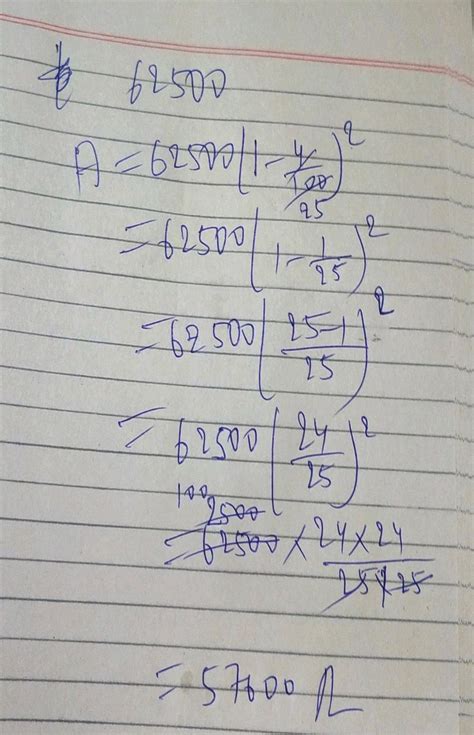 62500
A = 62500 (1 - 4/100 25)²
= 62500 (1 - 1/25)²
= 62500 (25-1/25)²
= 62500 (24/25)²
100 2500
= 62500 × 24×24/25×25
= 57600